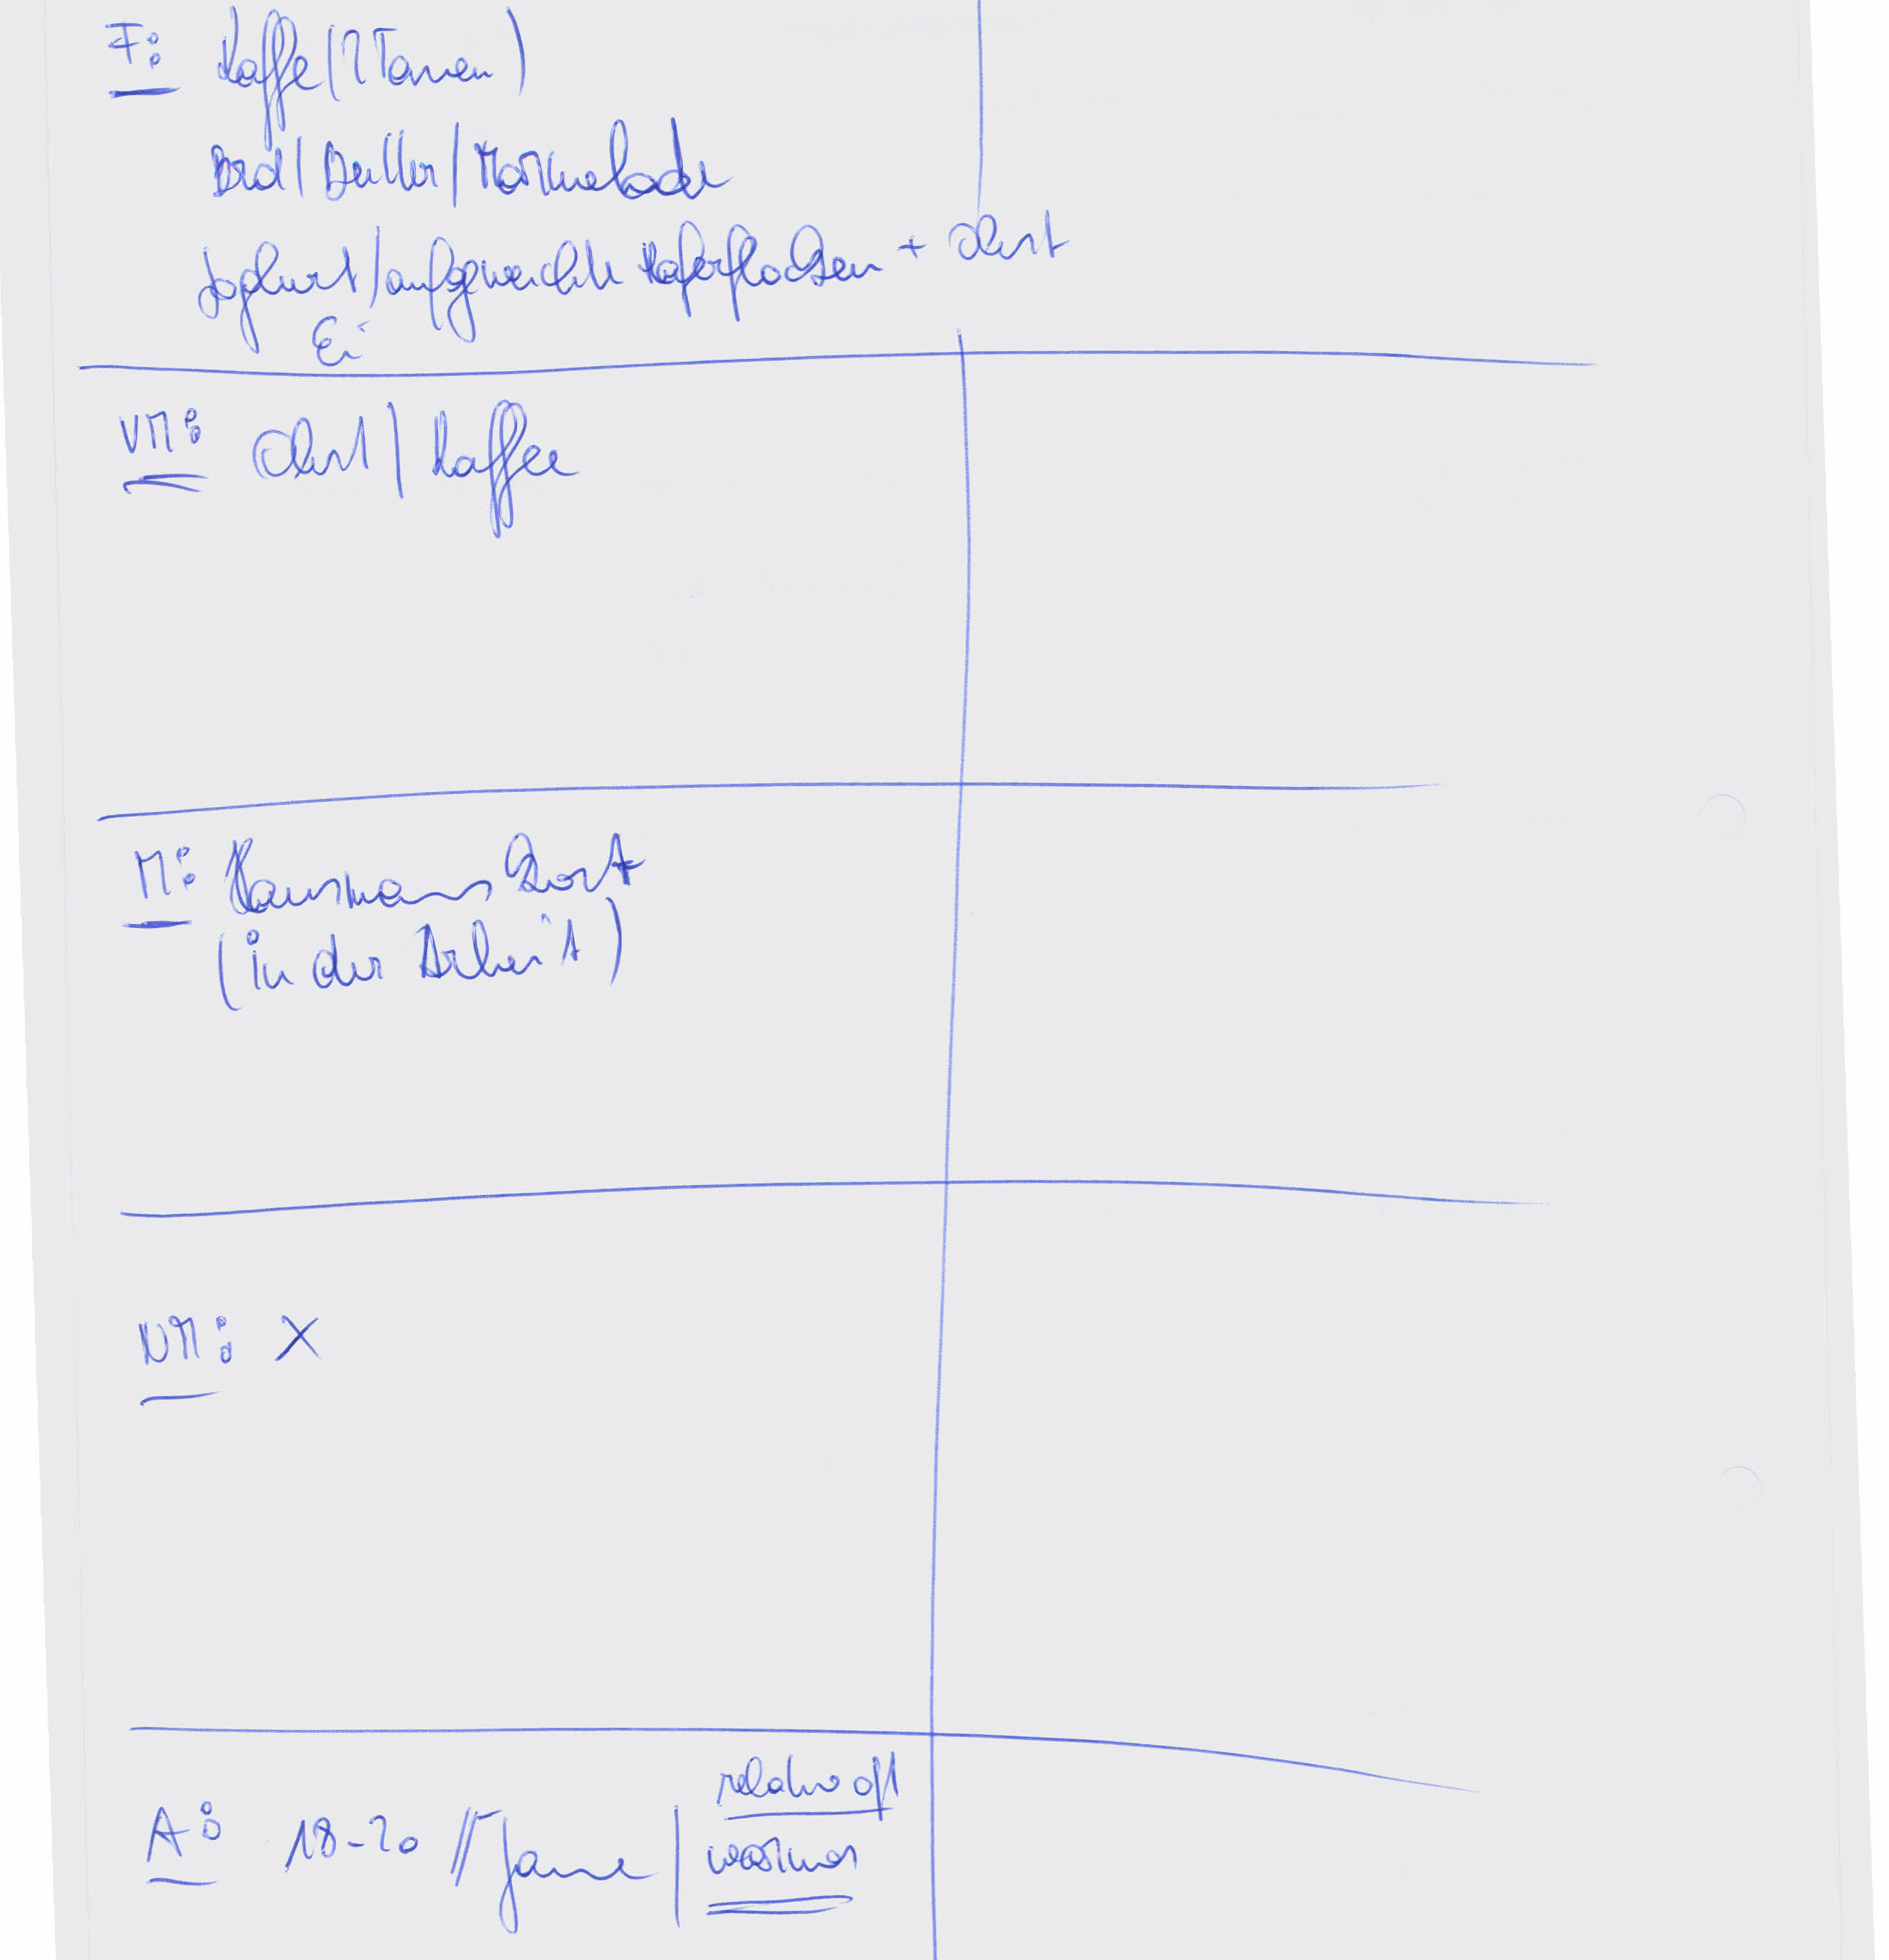 F: Kaffe (2 Tassen)
Brot / Butter / Marmelade
Joghurt / aufgeweichte Haferflocken + Obst
Ei
VM: Obst / Kaffee
M: Hausmanns Kost
(in der Arbeit)
NM: X
relativ oft
A: 18-20 // Jause / warmes